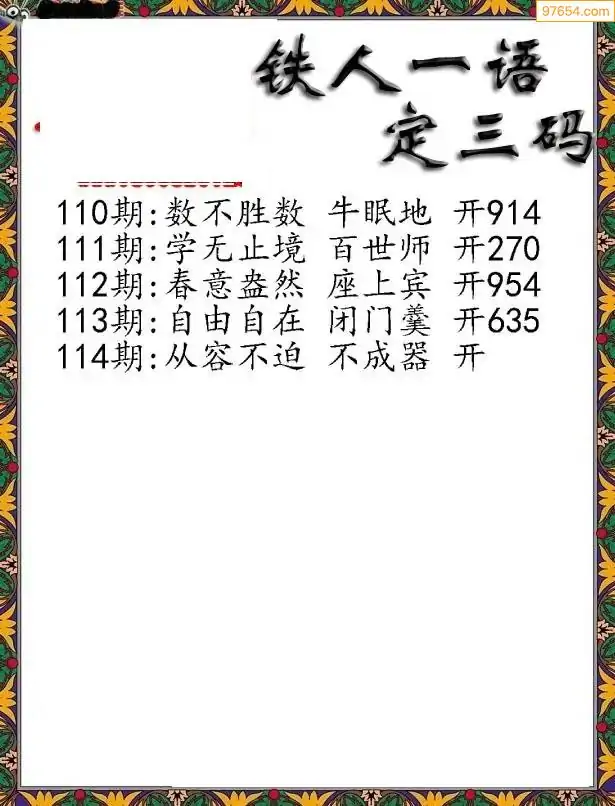 97654.com
铁人一语
定三码
110期:数不胜数 牛眠地 开914
111期:学无止境 百世师 开270
112期:春意盎然 座上宾 开954
113期:自由自在 闭门羹 开635
114期:从容不迫 不成器 开